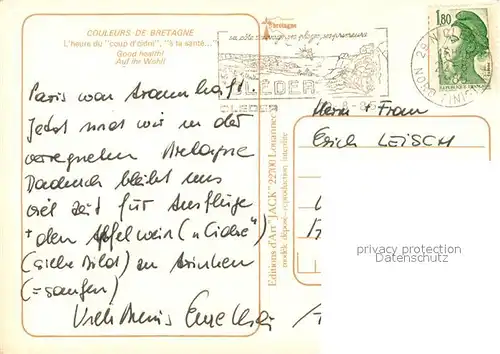 COULEURS DE BRETAGNE
L'heure du "coup d'cidre", "à ta santé..."
Good health!
Auf ihr Wohl!
bretagne
CLEDER
CLEDER
1,80
Paris war traumhaft.
Jetzt sind wir in der
verregneten Bretagne
Dadurch bleibt uns
viel Zeit für Ausflüge
+ den Apfelwein ("Cidre")
(siehe Bild) zu trinken
(=saufen)
Viele
Editions d'Art "JACK" 22700 Louannec
modèle déposé - reproduction interdite
Herrn + Frau
Erich LEISCH
privacy protection